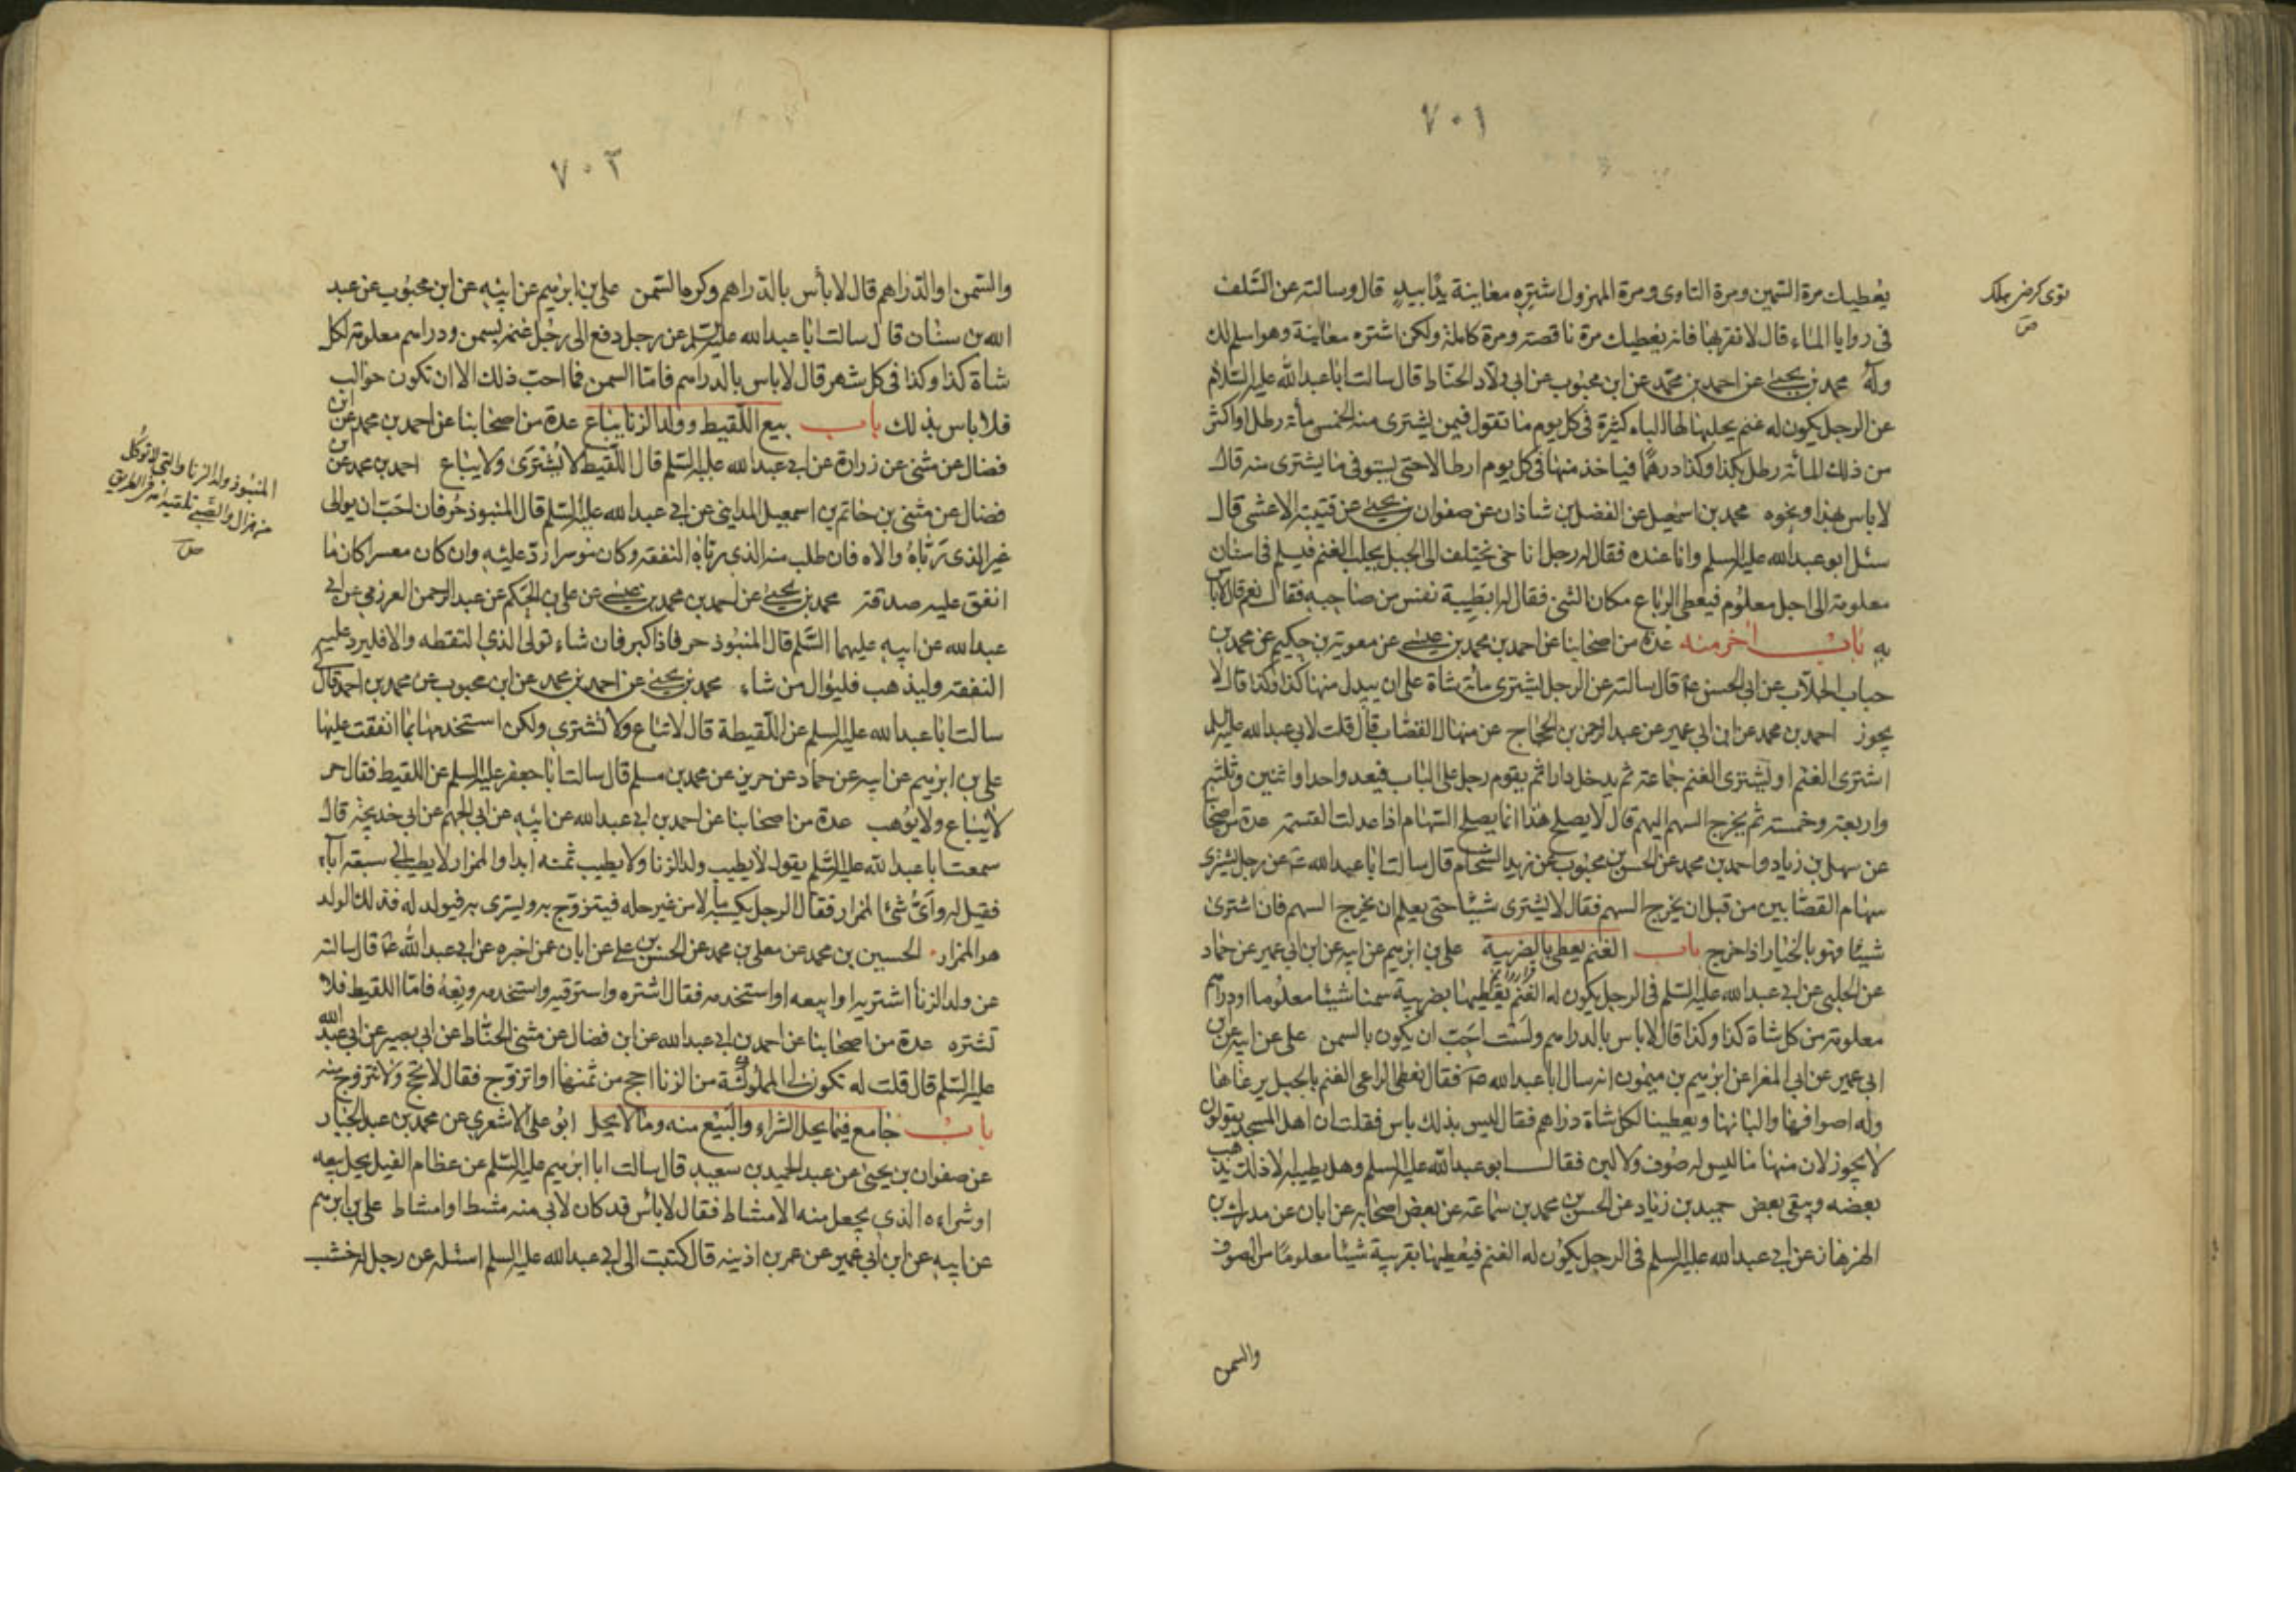 ٧٠١
يعطيك مرة السمين ومرة التاوى ومرة المهزول اشتره معاينة يدًا بيدٍ قال وسالته عن السّلف
توى كرضى هلك
ص
فى روايا الماء قال لا تقربها فانه يعطيك مرة ناقصة ومرة كاملة ولكن اشتره معاينة وهو اسلم لك
وله محمد بن يحيى عن احمد بن محمّد عن ابن محبوب عن ابى ولاد الحنّاط قال سالت اباعبدالله عليه السّلام
عن الرجل يكون له غنم يحلبها لها البان كثيرة فى كل يوم ما تقول فيمن يشترى منه الخمس مأة رطل او اكثر
من ذلك المأة رطل بكذا وكذا درهمًا فياخذ منها فى كل يوم ارطالا حتى يستوفى ما يشترى منه قال
لا باس بهذا ونحوه محمد بن اسمعيل عن الفضل بن شاذان عن صفوان بن يحيى عن قتيبة الاعشى قال
سئل ابو عبدالله عليه السلم وانا عنده فقال له رجل انا نختلف الى الجبل يجلب الغنم فيسلم فى اسنان
معلومة الى اجل معلوم فيعطى الرباع مكان الثنى فقال له ابطيبة نفس من صاحبه فقال نعم قال لا باس
به باب اخر منه عدة من اصحابنا عن احمد بن محمد بن عيسى عن معوية بن حكيم عن محمد بن
حباب الجلاب عن ابى الحسن ع قال سالته عن الرجل يشترى مأة شاة على ان يبدل منها كذا وكذا قال لا
يجوز احمد بن محمد عن ابن ابى عمير عن عبد الرحمن بن الحجاج عن منهال القصّاب قال قلت لابى عبدالله عليه السلم
اشترى الغنم او يشترى الغنم جماعة ثم يدخل دارا ثم يقوم رجل على الباب فيعد واحدا واثنين وثلثة
واربعة وخمسة ثم يخرج السهم اليهم قال لا يصلح هذا انما يصلح السّهام اذا عدلت القسمة عدة من اصحابنا
عن سهل بن زياد واحمد بن محمد عن الحسن بن محبوب عن زيد الشحام قال سالت اباعبدالله ع عن رجل يشترى
سهام القصّابين من قبل ان يخرج السهم فقال لا يشترى شيئا حتى يعلم ان يخرج السهم فان اشترى
شيئا فهو بالخيار اذا خرج باب الغنم يعطى بالضريبة على بن ابرهيم عن ابيه عن ابن ابى عمير عن حماد
عن الحلبى عن ابى عبدالله عليه السّلم فى الرجل يكون له الغنم يعطيها بضريبة سمنا شيئا معلوما او دراهم
معلومة من كل شاة كذا وكذا قال لا باس بالدراهم ولست احب ان يكون بالسمن على عن ابيه عن ابن
ابى عمير عن ابى المغرا عن ابرهيم بن ميمون انه سال اباعبدالله ع فقال نعطى الراعى الغنم بالجبل يرعاها
وله اصوافها والبانها ويعطينا لكل شاة دراهم فقال ليس بذلك باس فقلت ان اهل المسجد يقولون
لا يجوز لان منها ما ليس له صوف ولا لبن فقال ابو عبدالله عليه السلم وهل يطيبه الا ذلك يذهب
بعضه ويبقى بعض حميد بن زياد عن الحسن بن محمد بن سماعة عن بعض اصحابه عن ابان عن مدرك بن
الهزهاز عن ابى عبدالله عليه السلم فى الرجل يكون له الغنم فيعطيها بضريبة شيئا معلومًا من الصوف
والسمن
٧٠٢
والسّمن او الدّراهم قال لا بأس بالدّراهم وكره السّمن على بن ابرهيم عن ابيه عن ابن محبوب عن عبد
الله بن سنان قال سالت اباعبدالله عليه السّلم عن رجل دفع الى رجل غنمه بسمن ودراهم معلومة لكل
شاة كذا وكذا فى كل شهر قال لا باس بالدراهم فامّا السمن فما احبّ ذلك الا ان تكون حوالب
فلا باس بذلك باب بيع اللّقيط وولد الزنا يباع عدة من اصحابنا عن احمد بن محمد عن ابن
فضال عن مثنى عن زرارة عن ابى عبدالله عليه السّلم قال اللّقيط لا يُشترى ولا يباع احمد بن محمد عن ابن
المنبوذ ولد الزنا والتى لا توكل
من هزال والصّبى تلقيه امه فى الطريق
ص
فضال عن مثنى بن خاتم بن اسمعيل المداينى عن ابى عبدالله عليه السّلم قال المنبوذ حُر فان احبّ ان يوالى
غير الذى رَبّاهُ والاه فان طلب منه الذى ربّاه النفقة وكان موسرا ردّ عليه وان كان معسرا كان ما
انفق عليه صدقة محمد بن يحيى عن احمد بن محمد بن عيسى عن على بن الحكم عن عبد الرحمن العرزمى عن ابى
عبدالله عن ابيه عليهما السّلم قال المنبُوذ حر فاذا كبر فان شاء تولى الذى التقطه والا فليرد عليه
النفقة وليذهب فليوال من شاء محمد بن يحيى عن احمد بن محمد عن ابن محبوب عن محمد بن احمد قال
سالت اباعبدالله عليه السلم عن اللّقيطة قال لا تباع ولا تشترى ولكن استخدمها بما انفقت عليها
على بن ابرهيم عن ابيه عن حماد عن حريز عن محمد بن مسلم قال سالت اباجعفر عليه السلم عن اللقيط فقال حر
لا يُباع ولا يوهب عدة من اصحابنا عن احمد بن ابى عبدالله عن ابيه عن ابى الجهم عن ابى خديجة قال
سمعت اباعبدالله عليه السّلم يقول لا يطيب ولد الزنا ولا يطيب ثمنه ابدا والممزار لا يطيب الى سبعة آباء
فقيل له واىّ شئ الممزار فقال الرجل يكسب مالا من غير حله فيتزوّج به ويتسرى به فيولد له فذلك الولد
هو الممزار الحسين بن محمد عن معلى بن محمد عن الحسن بن على عن ابان عمن اخبره عن ابى عبدالله ع قال سالته
عن ولد الزنا اشتريه او ابيعه او استخدمه فقال اشتره واسترقه واستخدمه وبعهُ فامّا اللقيط فلا
تشتره عدة من اصحابنا عن احمد بن ابى عبدالله عن ابن فضال عن مثنى الحنّاط عن ابى بصير عن ابى عبد الله
عليه السّلم قال قلت له تكون لى المملوكة من الزنا احج من ثمنها او اتزوّج فقال لا تحج ولا تتزوج منه
باب جامع فيما يحل الشراء والبيْع منه وما لا يحل ابو على الاشعرى عن محمد بن عبد الجبّار
عن صفوان بن يحيى عن عبد الحميد بن سعيد قال سالت ابا ابرهيم عليه السّلم عن عظام الفيل يحل بيعه
او شراءه الذى يجعل منه الامشاط فقال لا باس قد كان لابى منه مشط او امشاط على بن ابرهيم
عن ابيه عن ابن ابى عمير عن عمر بن اذينه قال كتبت الى ابى عبدالله عليه السلم اسئله عن رجل له خشب